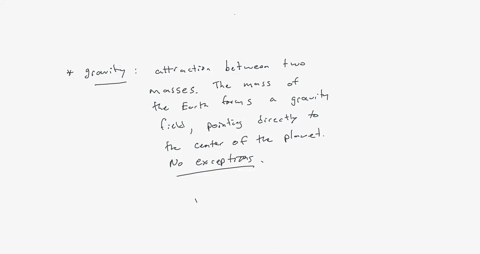 * gravity : attraction between two
masses. The mass of
the Earth forms a gravity
field, pointing directly to
the center of the planet.
No exceptions.